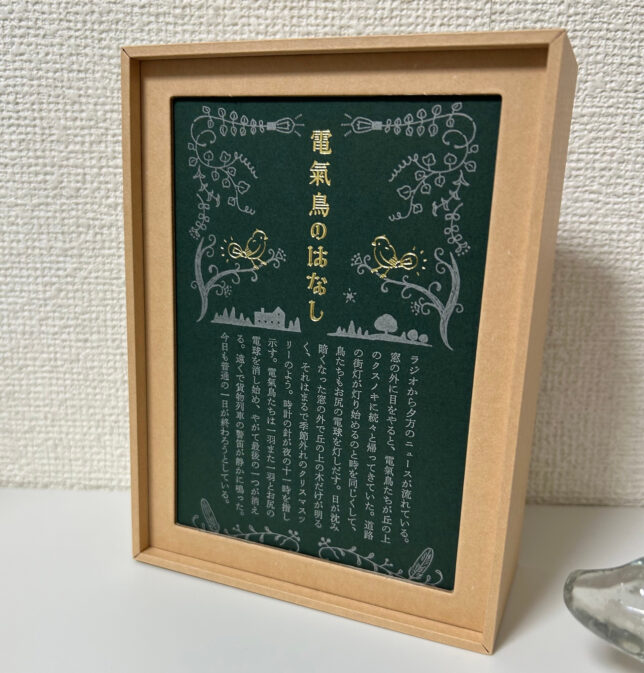 電氣鳥のはなし
ラジオから夕方のニュースが流れている。
窓の外に目をやると、電氣鳥たちが丘の上
のクスノキに続々と帰ってきていた。道路
の街灯が灯り始めるのと時を同じくして、
鳥たちもお尻の電球を灯しだす。日が沈み
暗くなった窓の外で丘の上の木だけが明る
く、それはまるで季節外れのクリスマスツ
リーのよう。時計の針が夜の十一時を指し
示す。電氣鳥たちは一羽また一羽とお尻の
電球を消し始め、やがて最後の一つが消え
る。遠くで貨物列車の警笛が静かに鳴った。
今日も普通の一日が終わろうとしている。